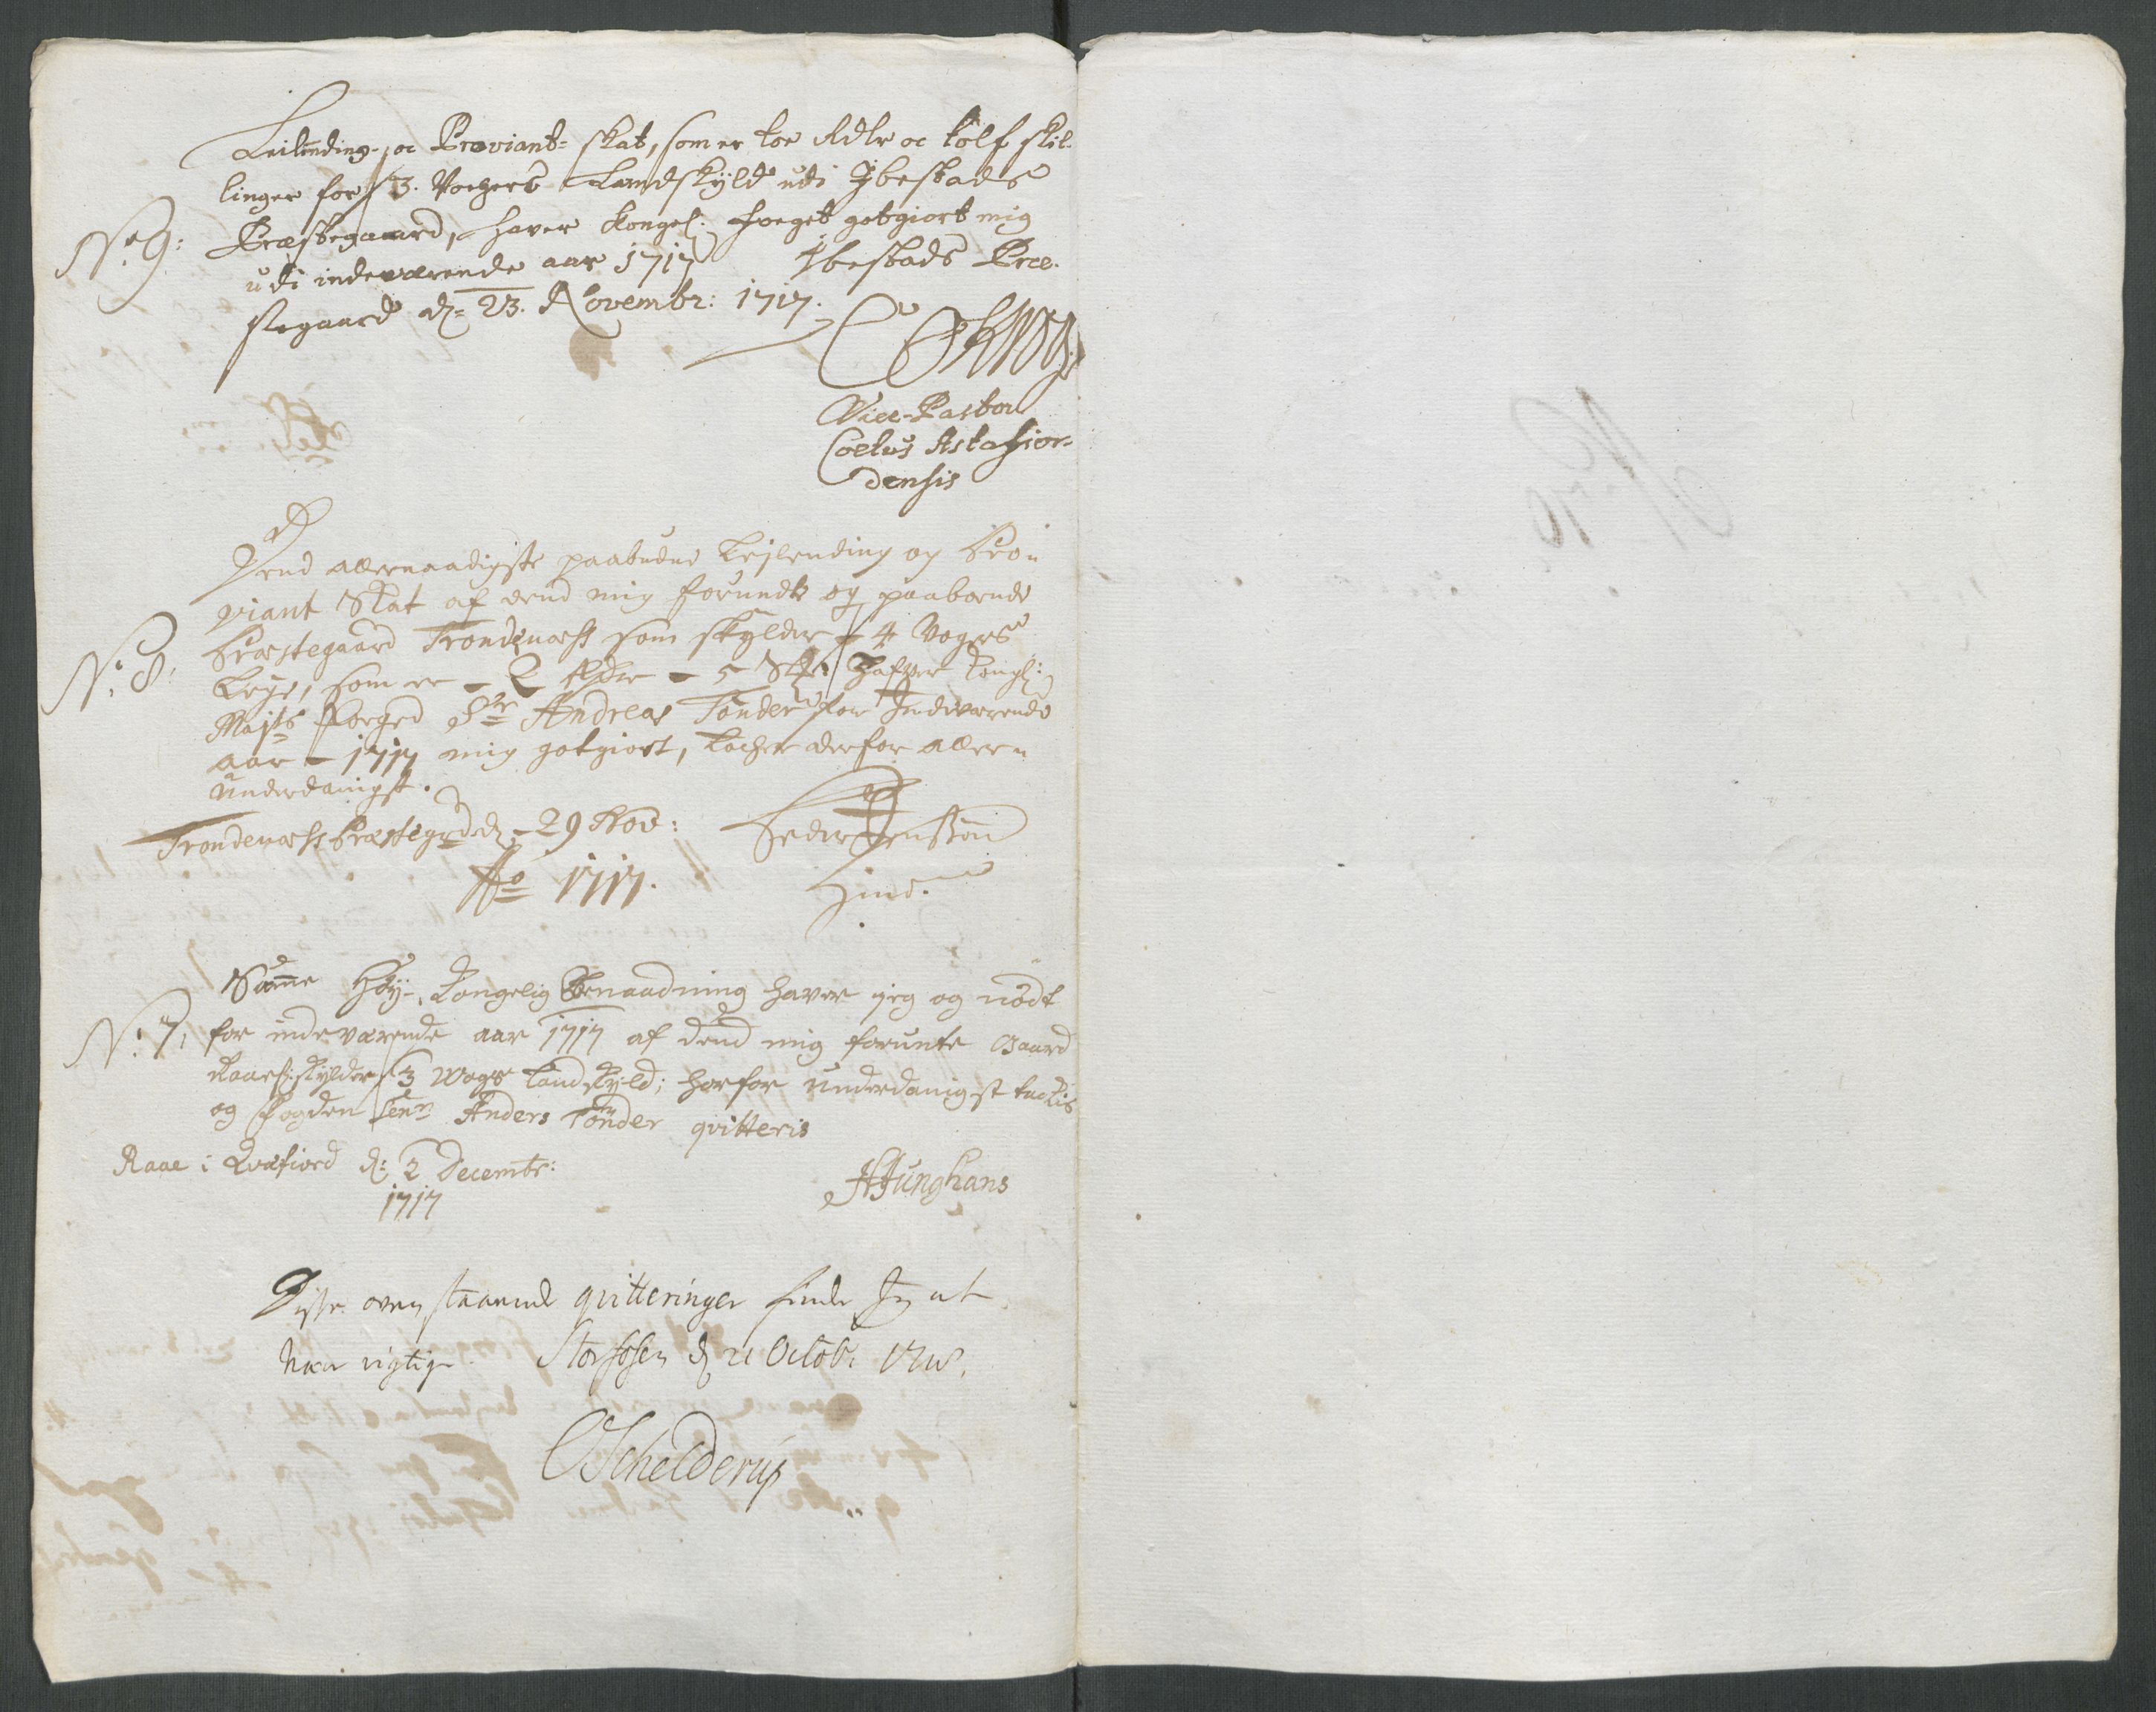 Leilending- oc Proviant- skat, som er toe Rdlr oc tolf skil-
linger for 3. Vochers Landskyld udi Ibestads
No 9: Præstegaard, haver Kongel: Foeget gotgiort mig
udi indeværende aar 1717 Ibestads Præ-
stegaard d: 23. Novembr: 1717.
Vice-Pastor
Coetus Astafior-
densis
Dend allernaadigste paabudne Leylending og Pro-
viant Skat af dend mig forundte og paaboende
No 8: Præstegaard Trondenæss som skylder 4 Vogers
Leye, som er - 2 Rdlr - 5 Sk: Hafver Kongl:
Majts Foeged Sr Andreas Tønder for Indeværende
aar - 1717 mig gotgiort, tacher derfor aller-
underdanigst.
Trondenæss Præstegrd d: 29 Nov: Peder Jensson
Ao 1717. Hind.
Samme Høy-Kongelig Benaadning haver jeg og nødt
No 7, for indeværende aar 1717 af dend mig forunte Gaard
Raae skylder 3 Woger Landskyld; hvorfor underdanigst tackis
og Fogden Senr Anders Tønder qvitteris
Raae i Qvæfiord d: 2 Decembr:
1717 HJunghans
Disse ovenstaaende qvitteringer finder Jeg at
være rigtige. Storfosen d 21 Octobr 1718.
OSchelderup
No 10